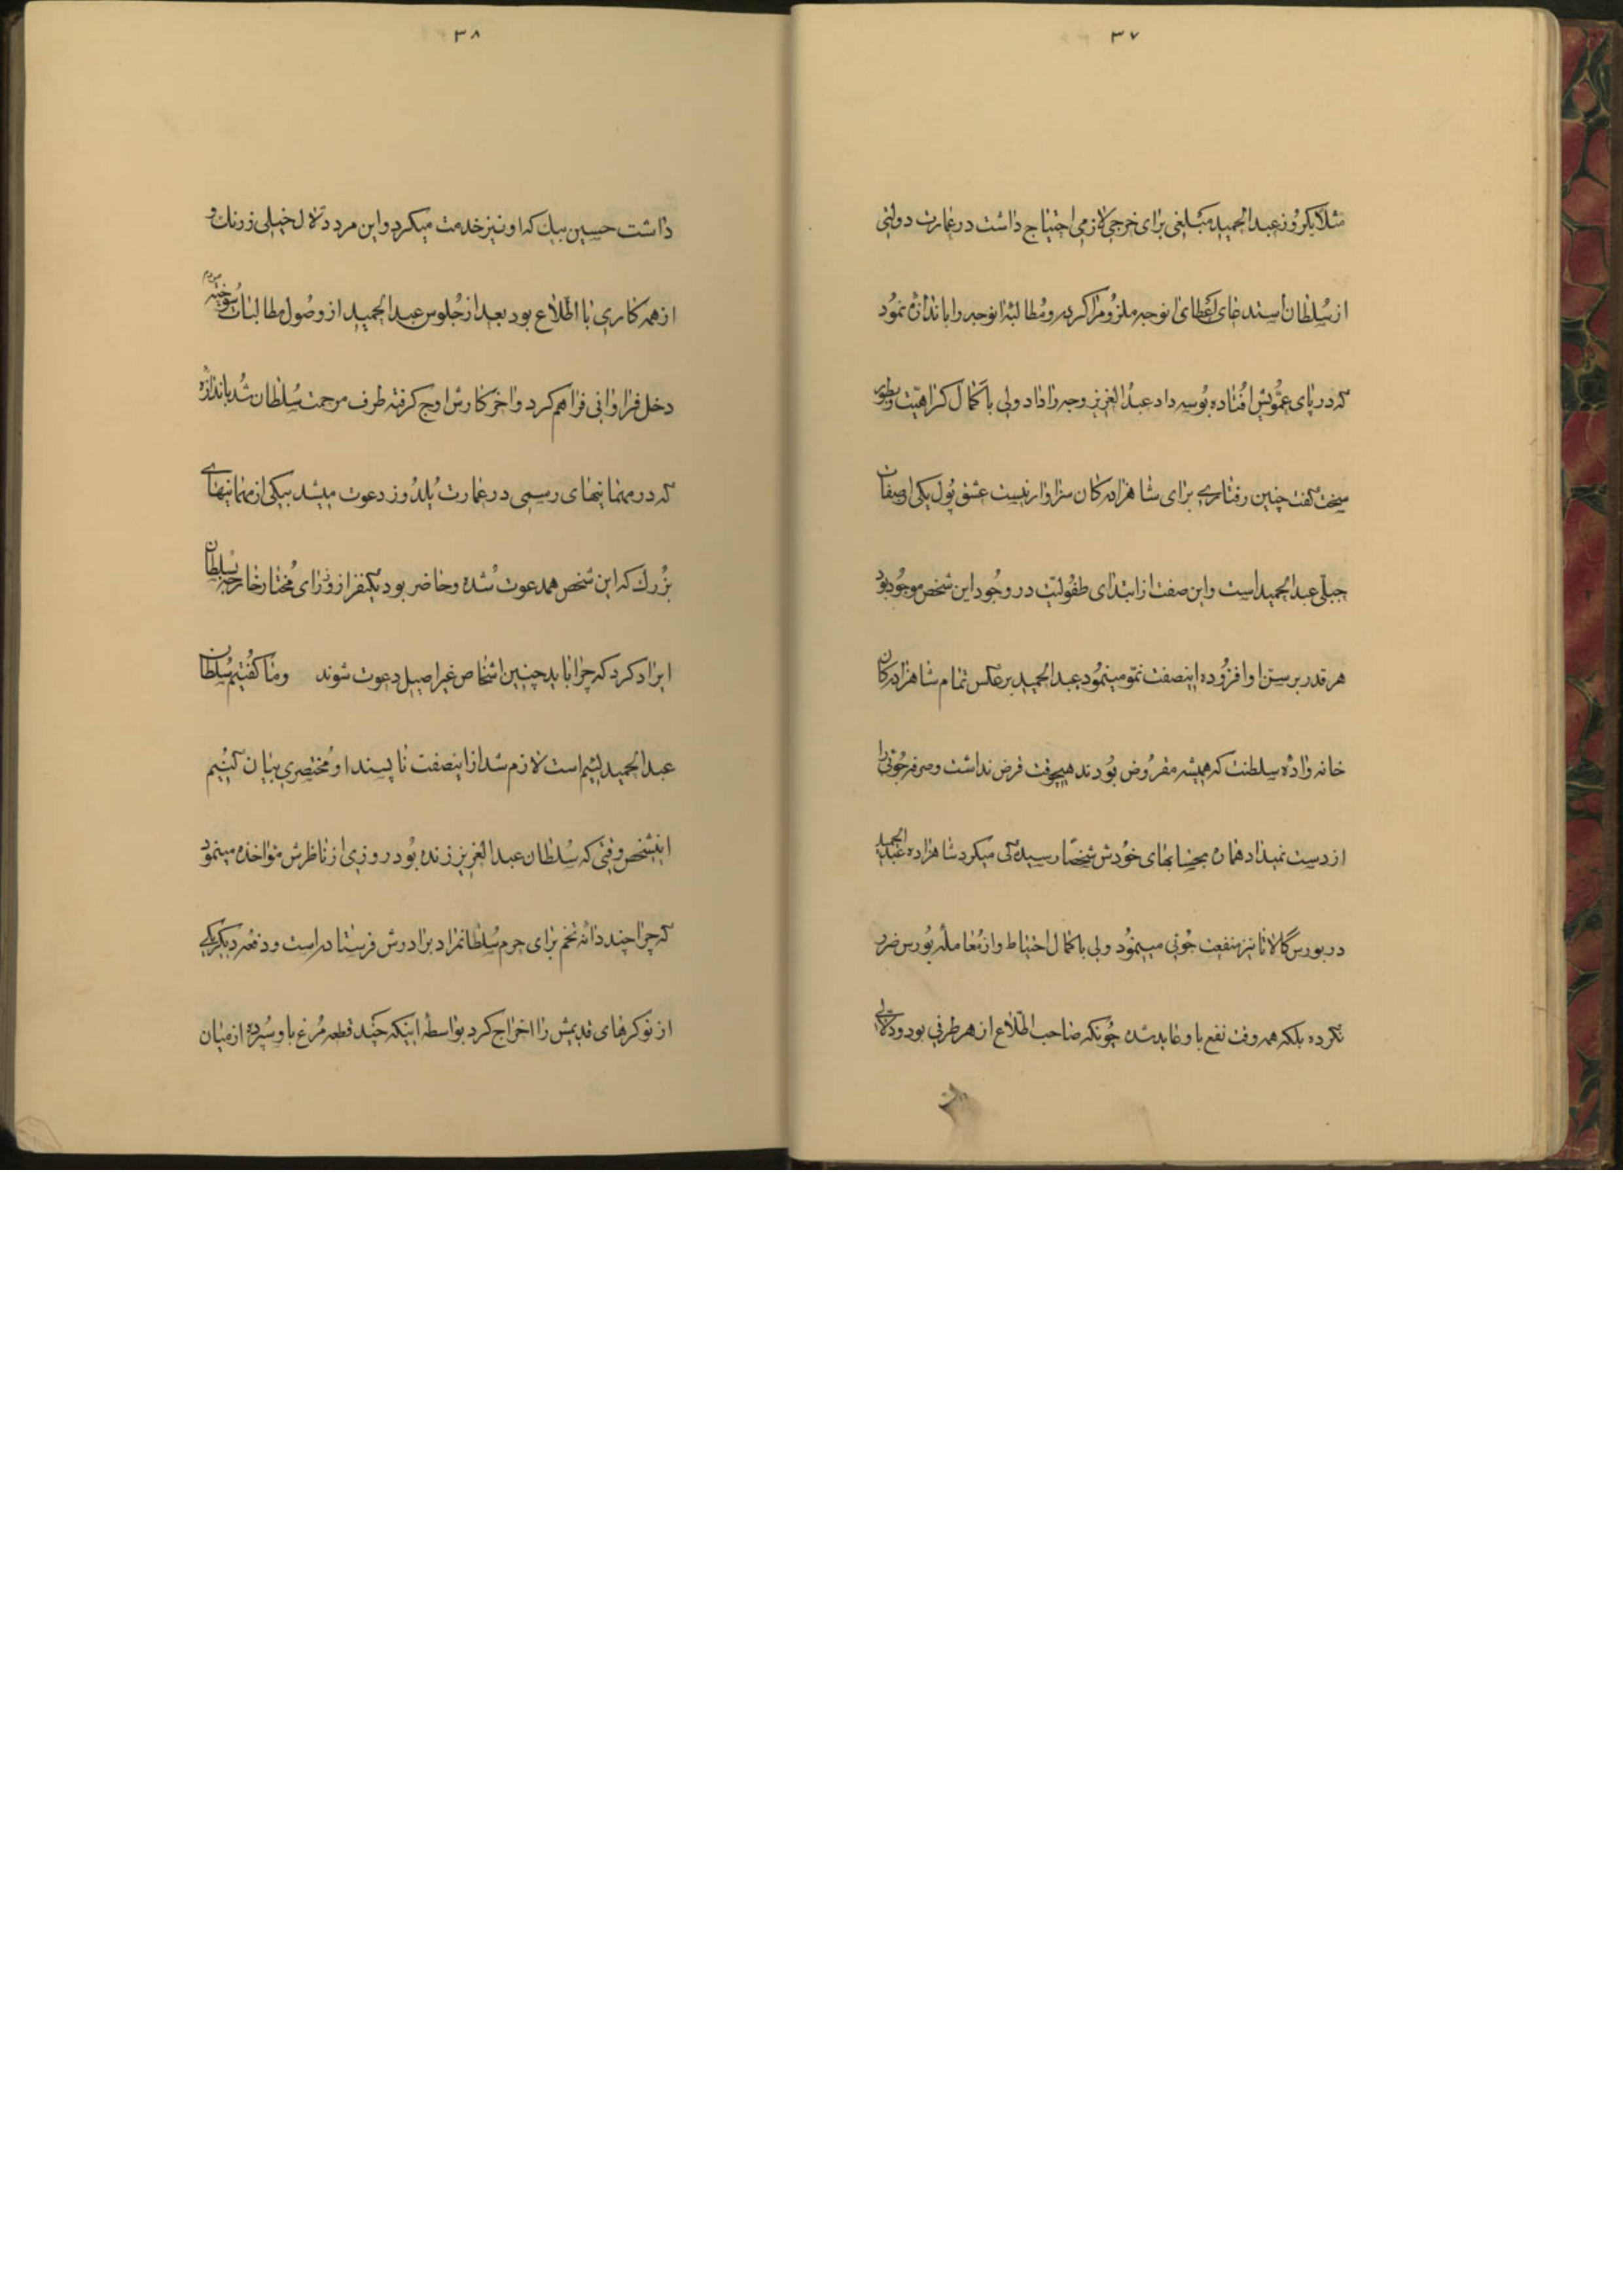 ۳۷
مثلا یکروز عبدالحمید مبلغی برای خرجی لازمی احتیاج داشت در عمارت دولتی
از سلطان استدعای اعطای انوجه ملزومرا کرده و مطالبهٔ انوجه را باندازهٔ نمود
که در پای عمویش افتاده بوسه داد عبدالعزیز وجه را داد ولی با کمال کراهیت و بطور
سخت گفت چنین رفتاری برای شاهزادهکان سزاوار نیست عشق پول یکی از صفات
جبلی عبدالحمید است و این صفت از ابتدای طفولیت در وجود این شخص موجود بود
هر قدر بر سن او افزوده اینصفت نمو مینمود عبدالحمید بر عکس تمام شاهزادهکان
خانهوادهٔ سلطنت که همیشه مقروض بودند هیچوقت قرض نداشت و صرفهجوئی را
از دست نمیداد همان بحسابهای خودش شخصا رسیدهکی میکرد شاهزاده عبدالحمید
در بورس گالاتا نیز منفعت جوئی مینمود ولی با کمال احتیاط و از معامله بورس ضرر
نکرده بلکه همهوقت نفع باو عاید شده چونکه صاحب اطلاع از هر طرفی بود و دلالی
۳۸
داشت حسین بیک که او نیز خدمت میکرد و این مرد دلال خیلی زرنک و
از همه کاری با اطلاع بود بعد از جلوس عبدالحمید از وصول مطالبات سوخته مردم
دخل فراوانی فراهم کرد و اخر کارش اوج کرفته طرف مرحمت سلطان شد باندازهٔ
که در مهمانیهای رسمی در عمارت یلدوز دعوت میشد بیکی از مهمانیهای
بزرک که این شخص هم دعوت شده و حاضر بود یکنفر از وزرای مختار خارجه بسلطان
ایراد کرد که چرا باید چنین اشخاص غیر اصیل دعوت شوند و ما کفتیم سلطان
عبدالحمید لئیم است لازم شد از اینصفت ناپسند او مختصری بیان کنیم
اینشخص وقتی که سلطان عبدالعزیز زنده بود روزی از ناظرش مؤاخذه مینمود
که چرا چند دانه تخم برای حرم سلطانمراد برادرش فرستاده است و دفعه دیکر یکی
از نوکرهای قدیمش را اخراج کرد بواسطهٔ اینکه چند قطعه مرغ باو سپرده از میان